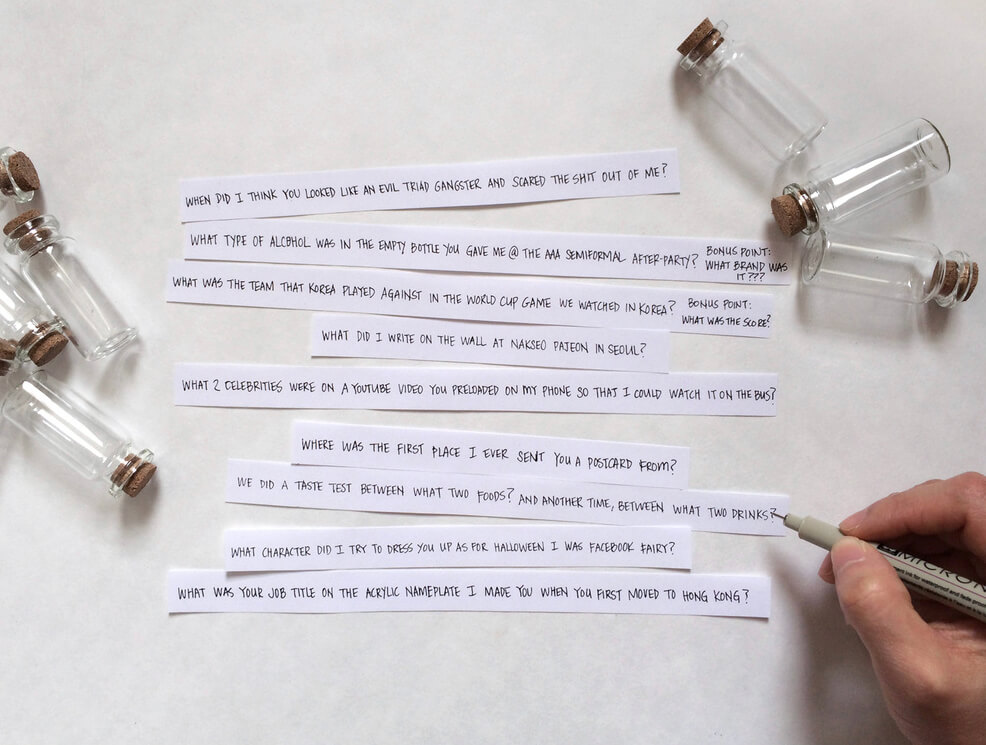 WHEN DID I THINK YOU LOOKED LIKE AN EVIL TRIAD GANGSTER AND SCARED THE SHIT OUT OF ME?
WHAT TYPE OF ALCOHOL WAS IN THE EMPTY BOTTLE YOU GAVE ME @ THE AAA SEMIFORMAL AFTER-PARTY?
BONUS POINT:
WHAT BRAND WAS
IT???
WHAT WAS THE TEAM THAT KOREA PLAYED AGAINST IN THE WORLD CUP GAME WE WATCHED IN KOREA?
BONUS POINT:
WHAT WAS THE SCORE?
WHAT DID I WRITE ON THE WALL AT NAKSEO PAJEON IN SEOUL?
WHAT 2 CELEBRITIES WERE ON A YOUTUBE VIDEO YOU PRELOADED ON MY PHONE SO THAT I COULD WATCH IT ON THE BUS?
WHERE WAS THE FIRST PLACE I EVER SENT YOU A POSTCARD FROM?
WE DID A TASTE TEST BETWEEN WHAT TWO FOODS? AND ANOTHER TIME, BETWEEN WHAT TWO DRINKS?
WHAT CHARACTER DID I TRY TO DRESS YOU UP AS FOR HALLOWEEN I WAS FACEBOOK FAIRY?
WHAT WAS YOUR JOB TITLE ON THE ACRYLIC NAMEPLATE I MADE YOU WHEN YOU FIRST MOVED TO HONG KONG?
MICRON